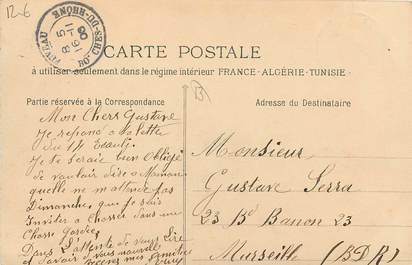 12-6
FUVEAU
BOUCHES-DU-RHONE
8-5
16-11
08
CARTE POSTALE
à utiliser seulement dans le régime intérieur FRANCE-ALGÉRIE-TUNISIE
Partie réservée à la Correspondance
Adresse du Destinataire
Mon Cher Gustave
Je repond a ta lettre
du 14
Je te serais bien Obligé
de vouloir dire a Maman
quelle ne m'attende pas
Dimanche que je suis
Inviter a Chasser dans une
Chasse Gardée
Dans L'Attente de vous Lire
et savoir
recevez mes amitiés
Monsieur
Gustave Serra
23 Bd Banon 23
Marseille (BDR)